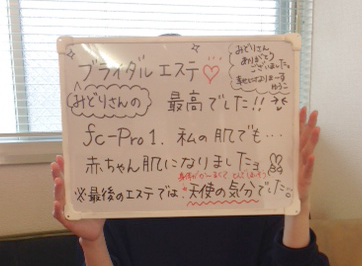 ブライダルエステ♡
みどりさん
ありがとう
ございました。
幸せになりまーす
みどりさんの 最高でした!!
fc-Pro1. 私の肌でも…
赤ちゃん肌になりましたョ
※最後のエステでは、天使の気分でした。